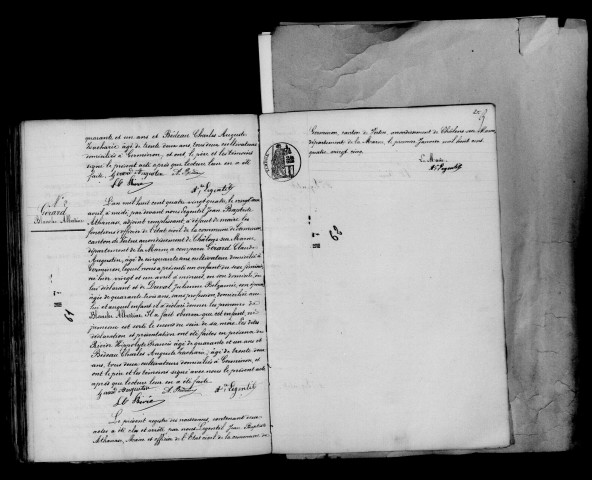 quarante et un ans et Bédeau Charles Auguste
Zacharie âgé de trente deux ans, tous deux cultivateurs
domiciliés à Germinon, et ont le père et les témoins
signé le présent acte après que lecture leur en a été
faite.
N° 2
Gérard
L'an mil huit cent quatre vingt quatre, le vingt
avril, à midi, par devant nous Legentil Jean Baptiste
Athanase, adjoint remplissant à défaut de maire les
fonctions d'officier de l'état civil de la commune de Germinon,
canton de Vertus arrondissement de Châlons sur Marne,
département de la Marne, a comparu Gérard Claude
Augustin, âgé de cinquante ans cultivateur domicilié à
Germinon, lequel nous a présenté un enfant du sexe féminin,
né hier vingt et un avril à minuit en son domicile, de
lui déclarant et de Duval Julienne, son épouse,
âgée de quarante trois ans, sans profession, domiciliée avec
lui et auquel enfant il a déclaré donner les prénoms de
Blanche. Il a fait observer que cet enfant
est sorti le second du sein de sa mère. Les dites
déclaration et présentation ont été faites en présence de
Rivière Hippolyte François âgé de quarante et un ans et
Bédeau Charles Auguste Zacharie, âgé de trente deux
ans, tous deux cultivateurs domiciliés à Germinon, et
ont le père et les témoins signé avec nous le présent acte
après que lecture leur en a été faite.
Le présent registre des naissances, contenant deux
actes a été clos et arrêté par nous Legentil Jean Baptiste
Athanase, Maire et officier de l'Etat civil de la commune de
Germinon, canton de Vertus, arrondissement de Châlons sur Marne,
département de la Marne, le premier Janvier mil huit cent
quatre vingt cinq.
Le Maire